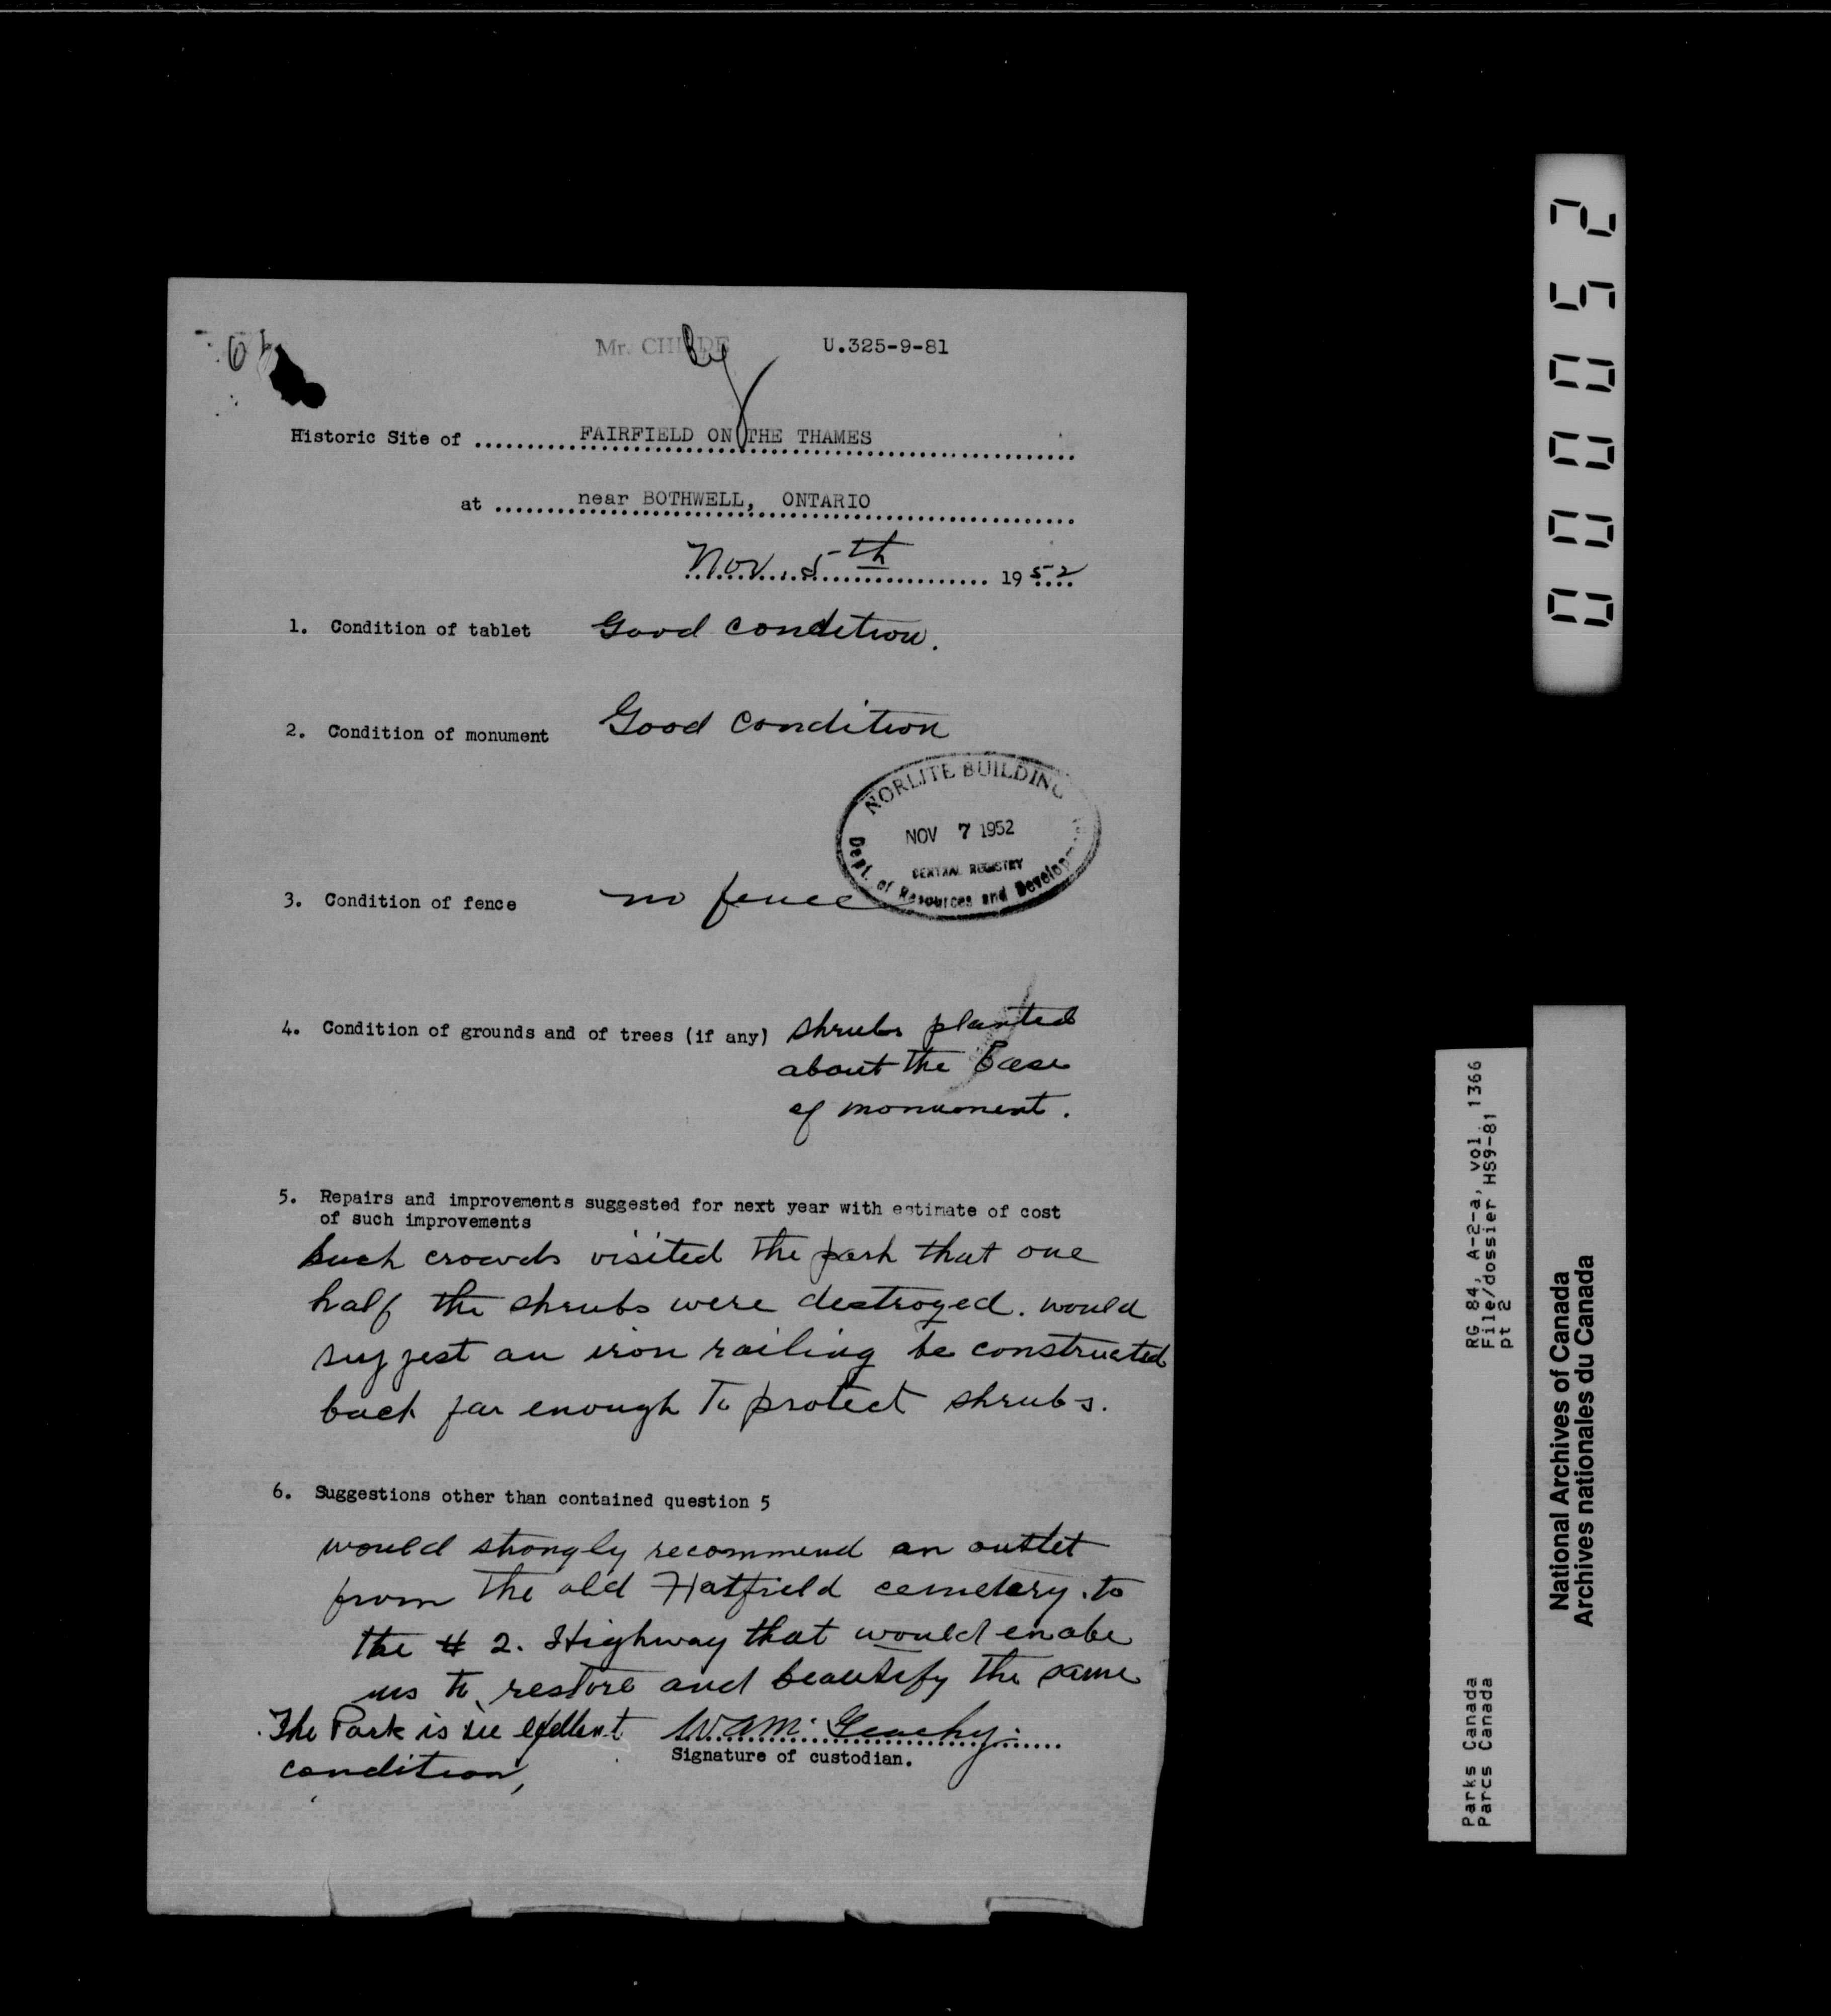 Mr. CHILDE
U.325-9-81
Historic Site of FAIRFIELD ON THE THAMES
at near BOTHWELL, ONTARIO
Nov. 5th 1952
1. Condition of tablet Good condition.
2. Condition of monument Good condition
NORLITE BUILDING
NOV 7 1952
CENTRAL REGISTRY
Dept. of Resources and Development
3. Condition of fence no fence
4. Condition of grounds and of trees (if any) shrubs planted
about the Base
of monument.
5. Repairs and improvements suggested for next year with estimate of cost
of such improvements
Such crowds visited the park that one
half the shrubs were destroyed. would
suggest an iron railing be constructed
back far enough to protect shrubs.
6. Suggestions other than contained question 5
would strongly recommend an outlet
from the old Hatfield cemetery. to
the # 2. Highway that would enabe
us to restore and beautify the same
The Park is in exellent
condition,
W.A. McGeachy.
Signature of custodian.
000052
RG 84, A-2-a, vol. 1366
File/dossier HS9-81
pt 2
Parks Canada
Parcs Canada
National Archives of Canada
Archives nationales du Canada